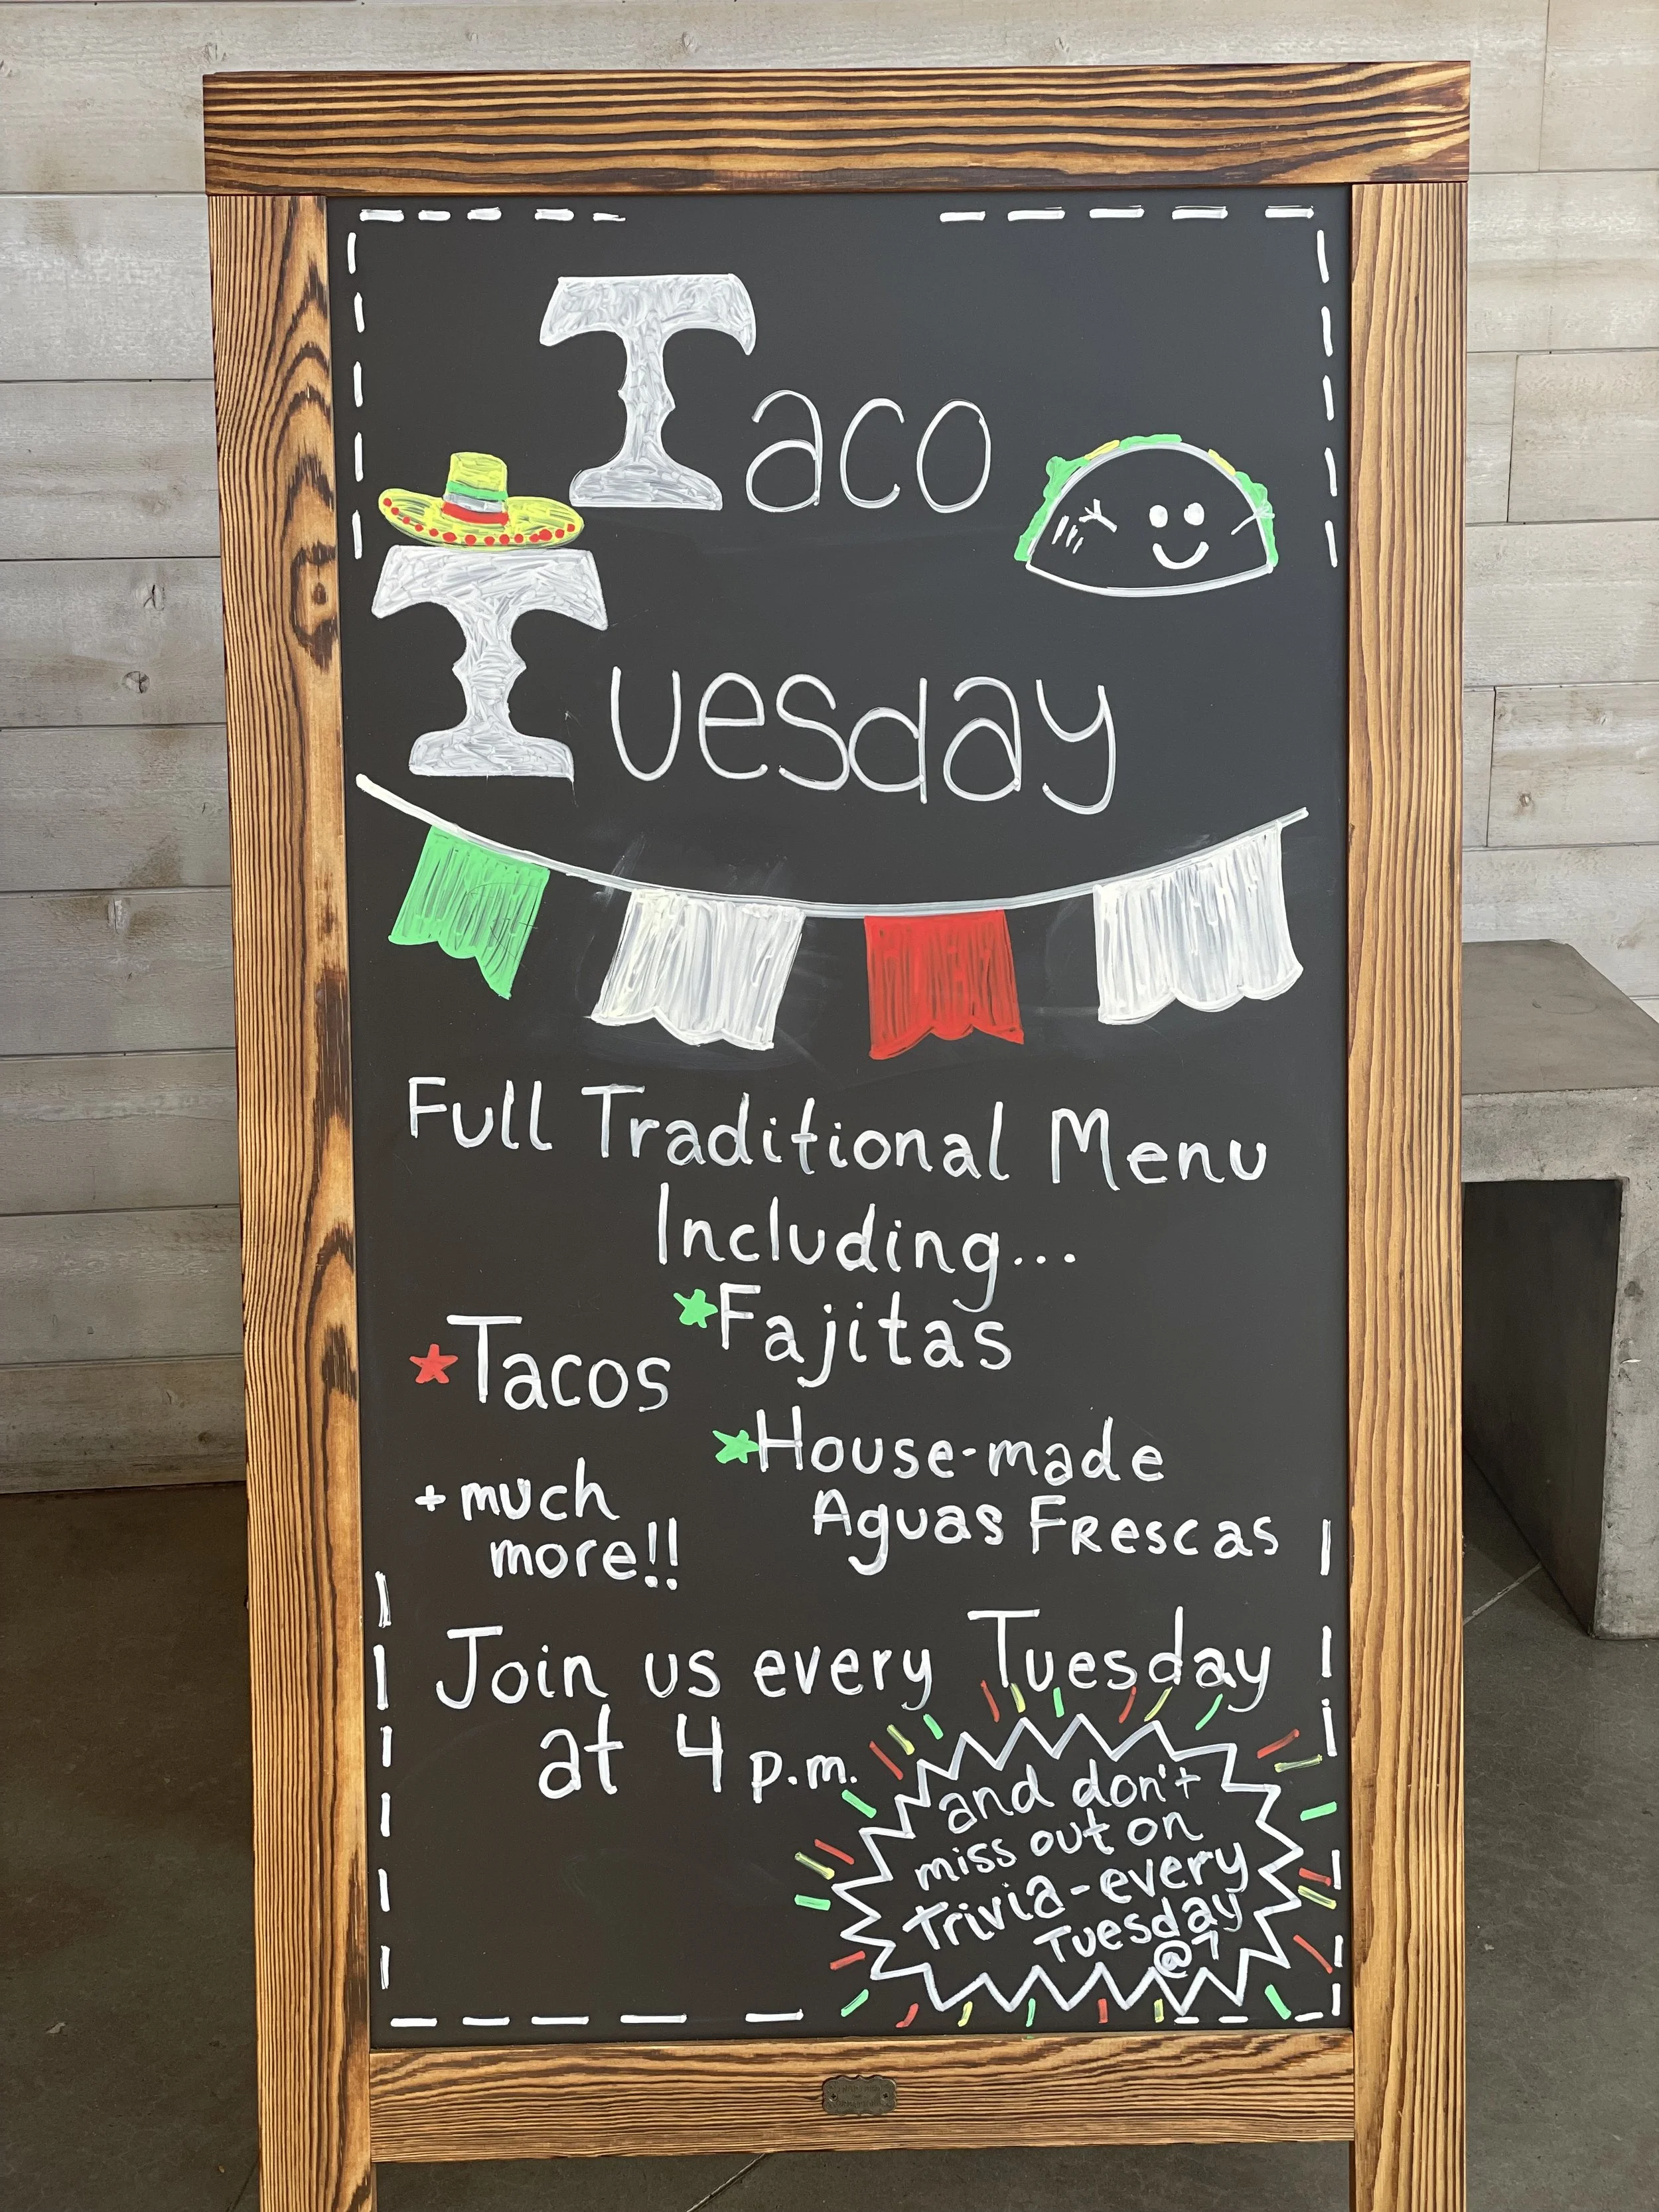 Taco
Tuesday
Full Traditional Menu
Including...
*Fajitas
*Tacos
*House-made
Aguas Frescas
+ much
more!!
Join us every Tuesday
at 4 p.m.
and don't
miss out on
Trivia-every
Tuesday
@7